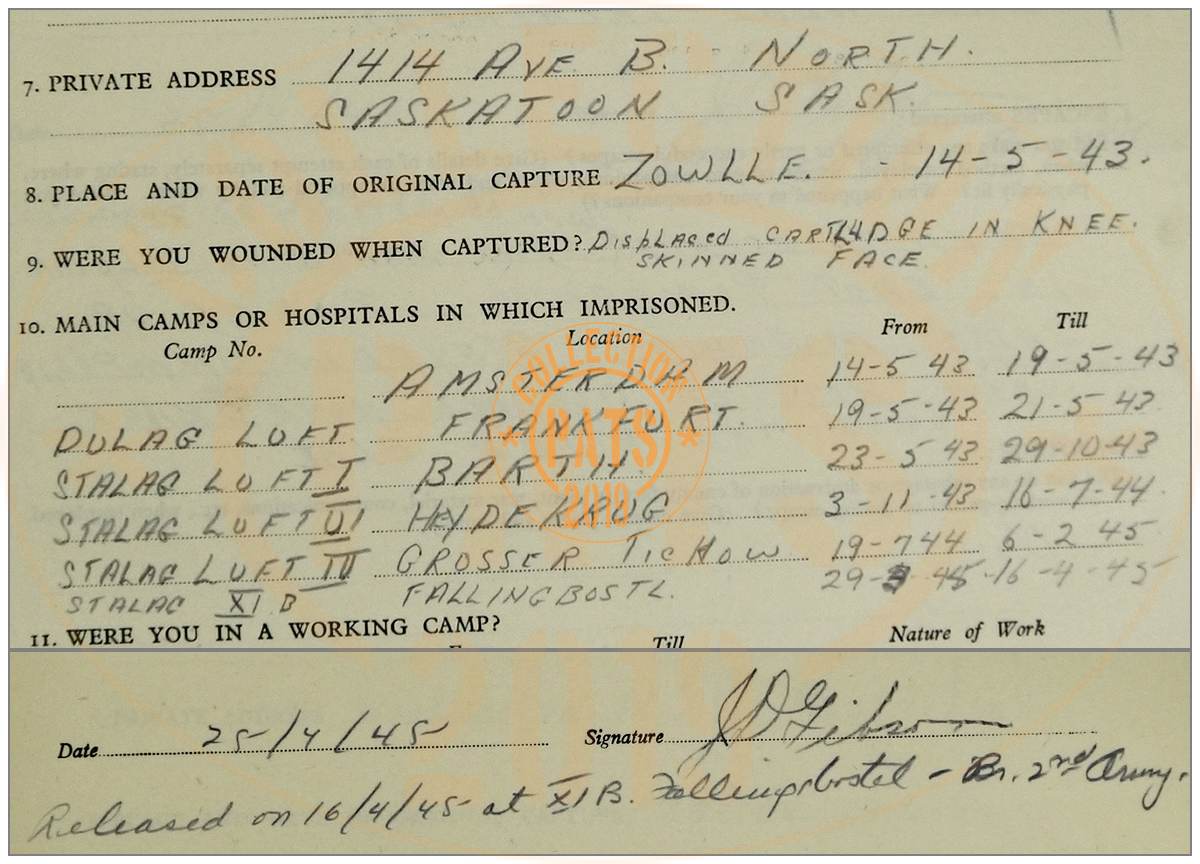 7. PRIVATE ADDRESS 1414 AVE B. NORTH.
SASKATOON SASK.
8. PLACE AND DATE OF ORIGINAL CAPTURE ZOWLLE. - 14-5-43.
9. WERE YOU WOUNDED WHEN CAPTURED? Displaced CARTLIDGE IN KNEE.
SKINNED FACE.
10. MAIN CAMPS OR HOSPITALS IN WHICH IMPRISONED.
Camp No. Location From Till
AMSTERDAM 14-5 43 19-5-43
DULAG LUFT. FRANKFURT. 19-5-43 21-5 43
STALAG LUFT I BARTH. 23-5 43 29-10-43
STALAG LUFT VI HEYDEKRUG 3-11-43 16-7-44.
STALAG LUFT IV GROSSER TICHOW 19-7 44 6-2 45
STALAG XI B FALLINGBOSTL. 29-3-45-16-4-45
11. WERE YOU IN A WORKING CAMP?
Till Nature of Work
COLLECTION
* PATS *
2019
Date 25/4/45 Signature JD Gibson
Released on 16/4/45 at XI B. Fallingsbostel - Br. 2nd Army.